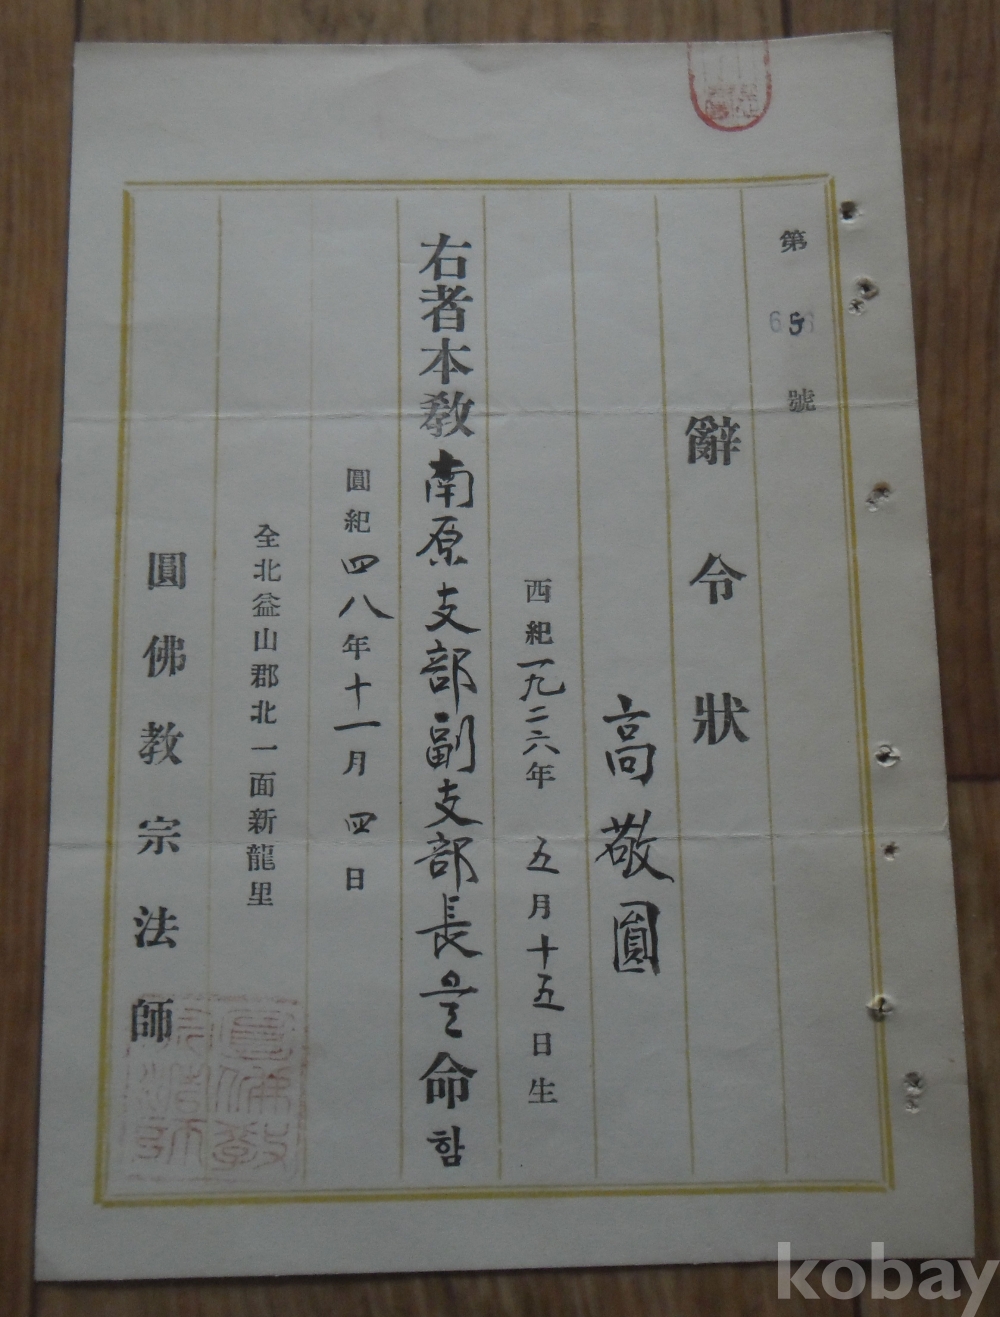 第 號
辭令狀
高敬圓
西紀一九二六年 五月十五日生
右者本教南原支部副支部長을命함
圓紀四八年十一月 四日
全北益山郡北一面新龍里
圓佛教宗法師
kobay